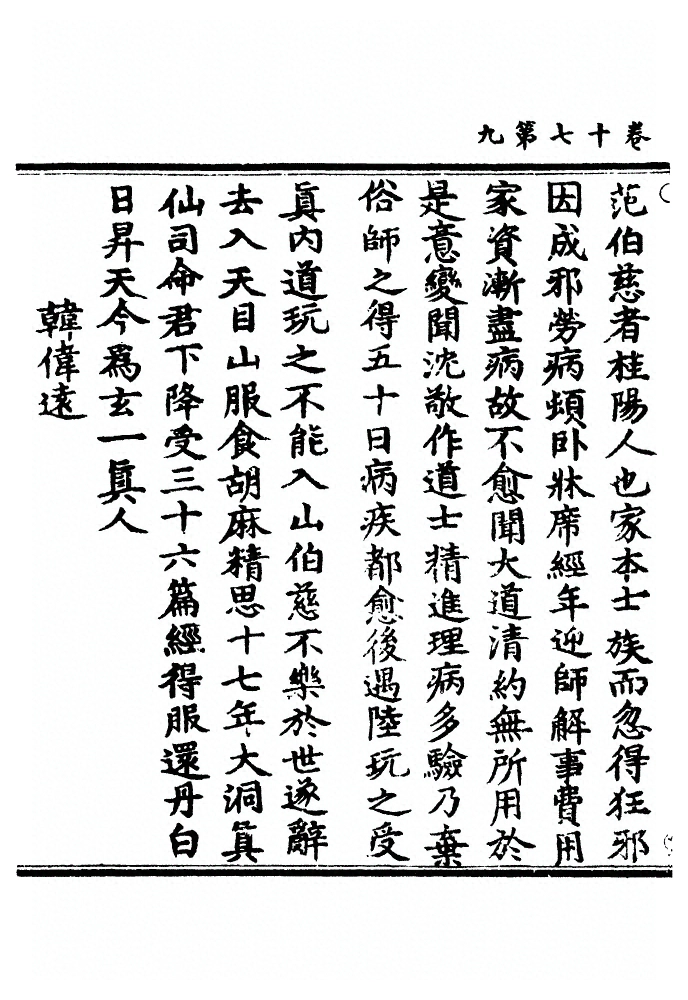 卷十七第九
范伯慈者桂陽人也家本士族而忽得狂邪
因成邪勞病頓卧牀席經年迎師解事費用
家資漸盡病故不愈聞大道清約無所用於
是意變聞沈敬作道士精進理病多驗乃棄
俗師之得五十日病疾都愈後遇陸玩之受
眞内道玩之不能入山伯慈不樂於世遂辭
去入天目山服食胡麻精思十七年大洞眞
仙司命君下降受三十六篇經得服還丹白
日昇天今爲玄一眞人
韓偉遠